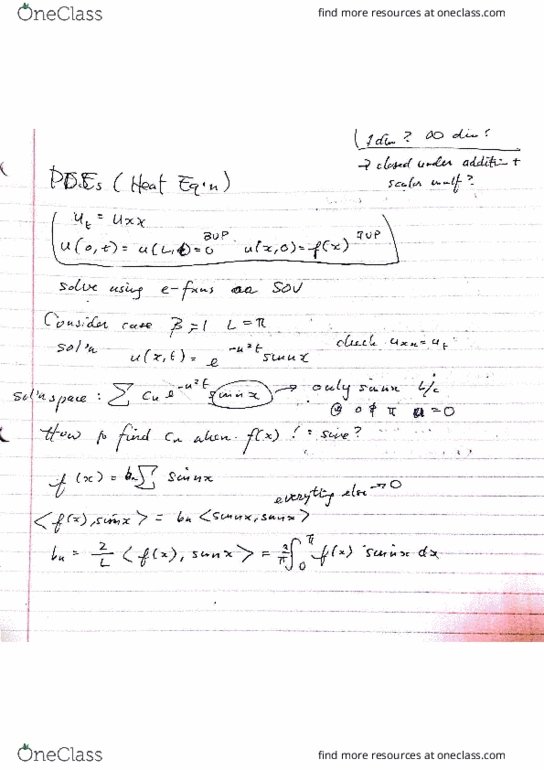 OneClass
find more resources at oneclass.com
1 dim? ∞ dim?
→ closed under addition +
scalar mult?
PDEs (Heat Eq'n)
u_t = u_xx
u(0,t) = u(L,t) = 0 BVP u(x,0) = f(x) IVP
solve using e-fxns SOV
Consider case β=1 L=π
sol'n u(x,t) = e^{-n²t} sin nx check u_xx = u_t
sol'n space: ∑ c_n e^{-n²t} sin nx → only sin nx b/c
@ 0 & π u=0
How to find c_n when f(x) != sine?
f(x) = b_n ∑ sin nx
everything else → 0
<f(x), sin nx> = b_n <sin nx, sin nx>
b_n = 2/L <f(x), sin nx> = 2/π ∫_0^π f(x) sin nx dx
OneClass
find more resources at oneclass.com